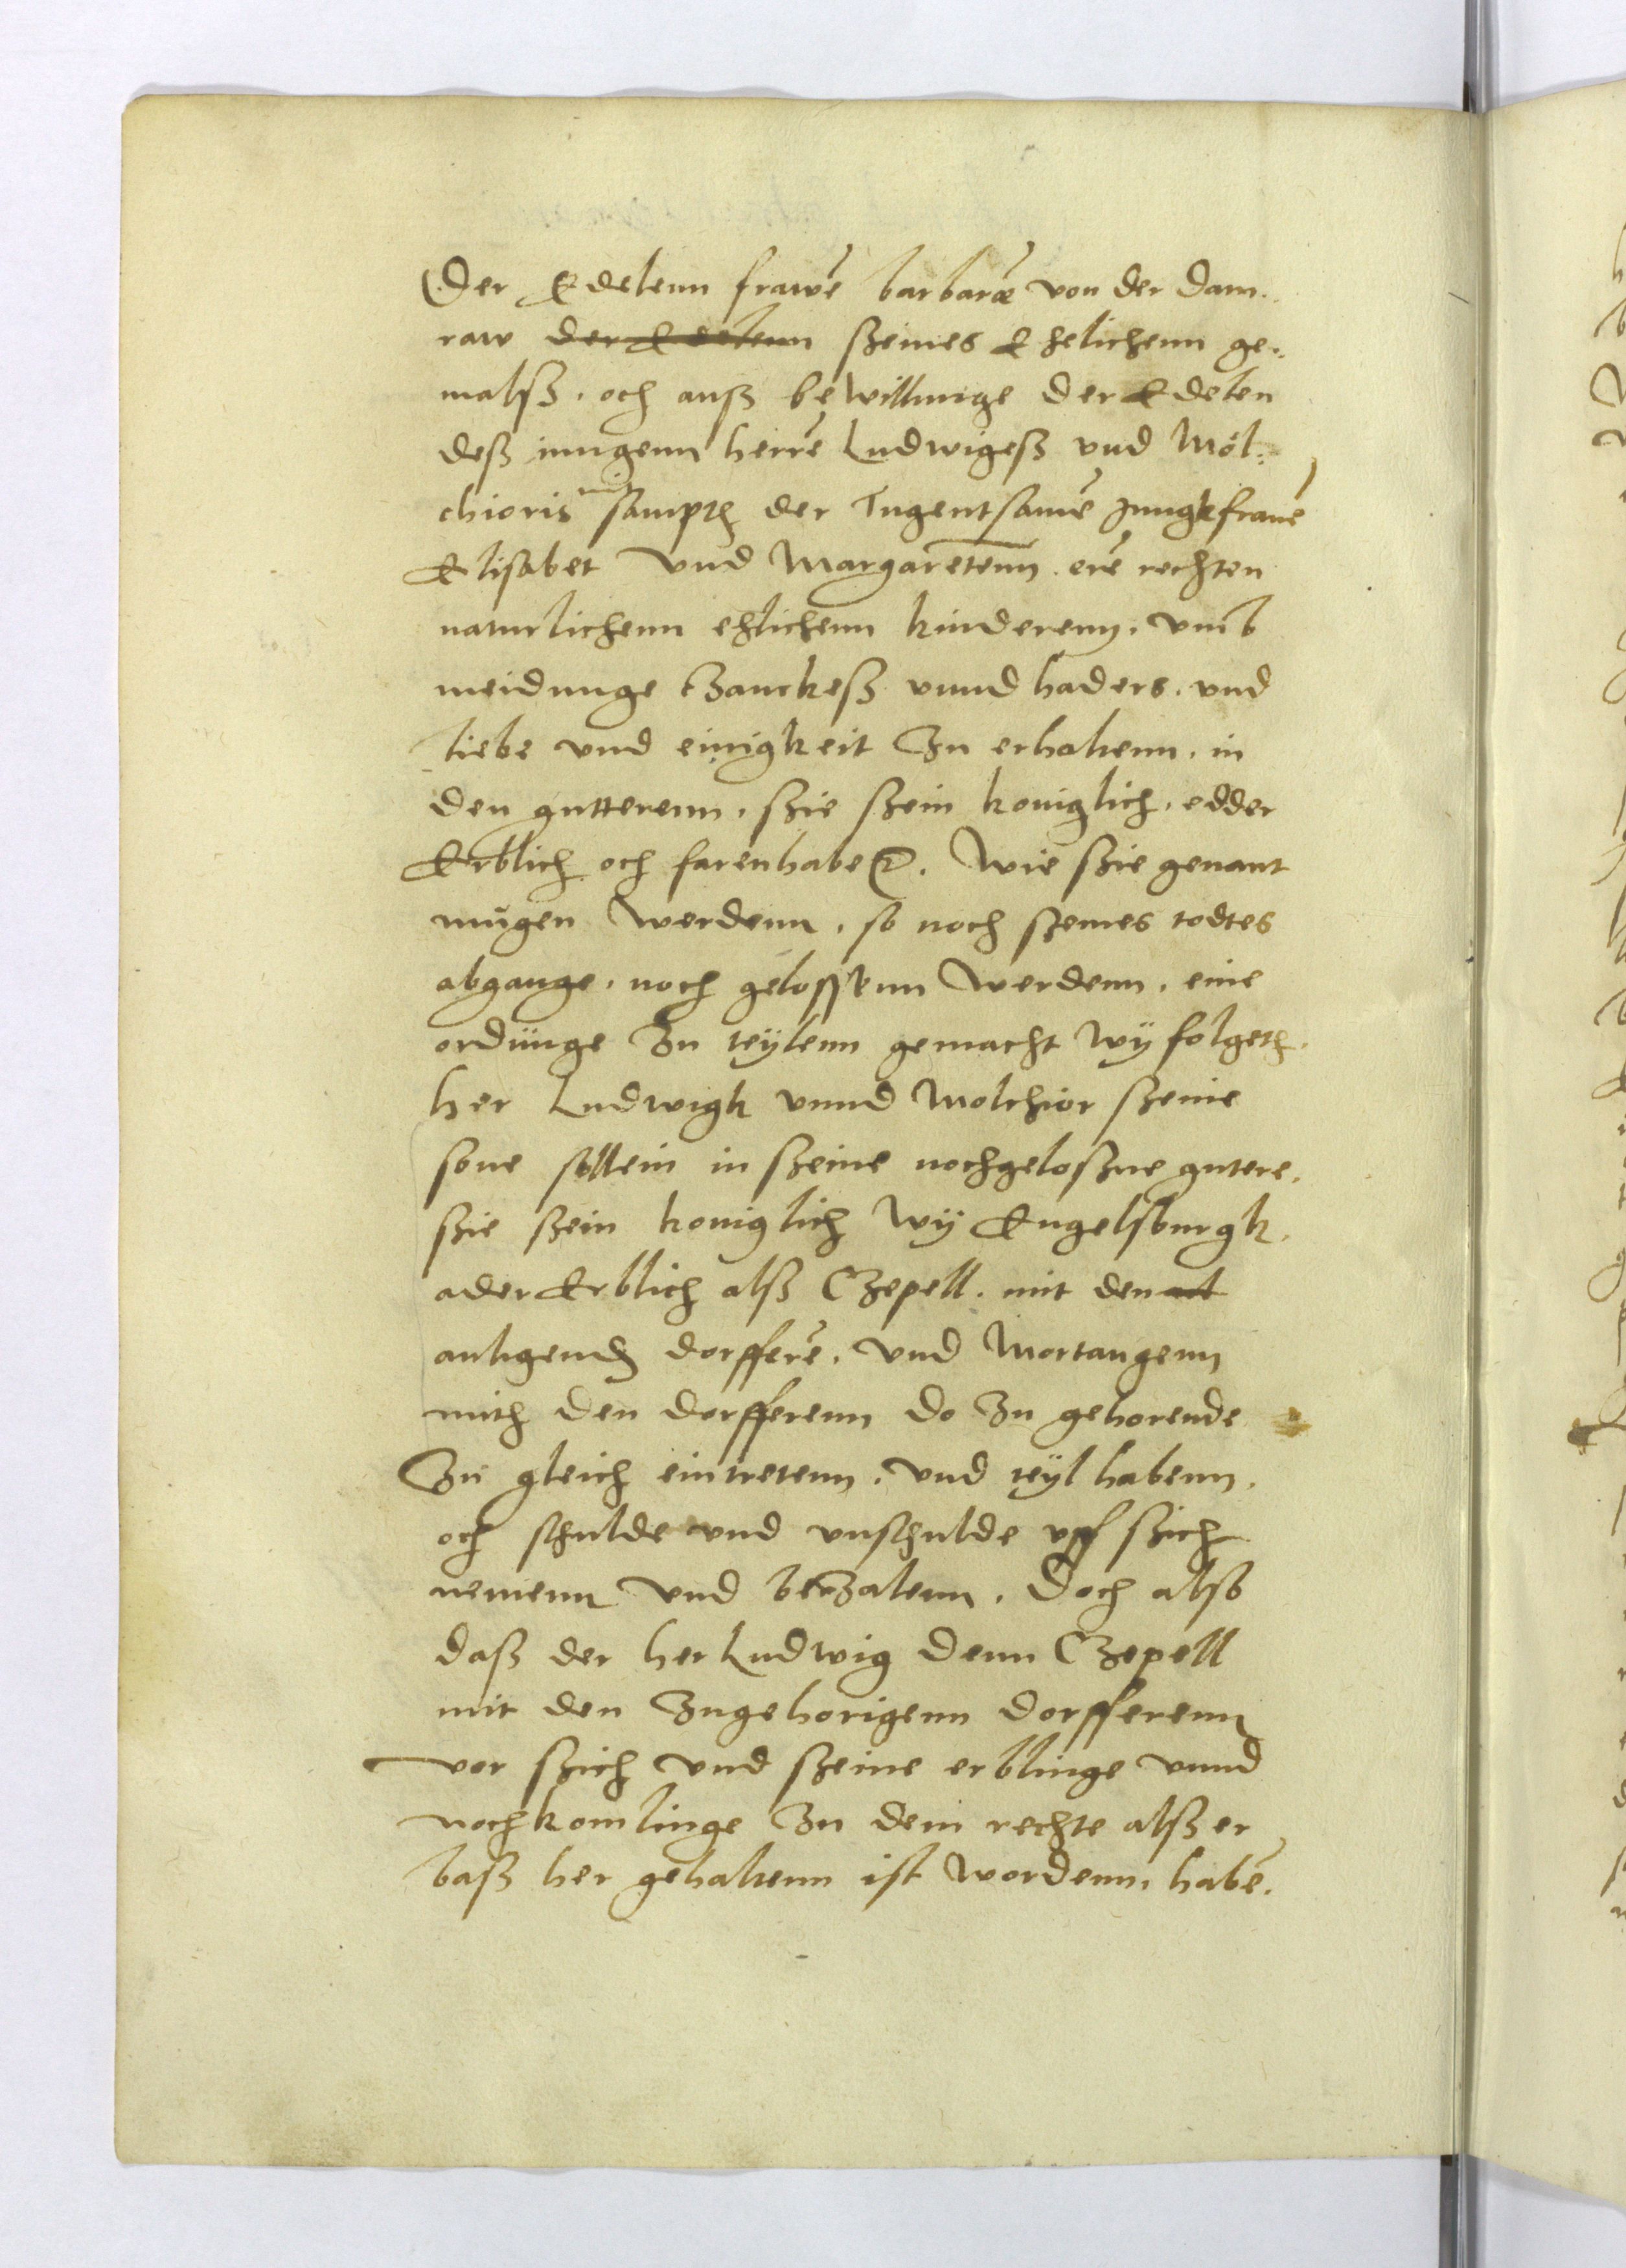 Der Edelenn frawē barbaræ von der Dam..
raw der Edelenn szeines Ehelichenn ge..
malß. och auß bewillunge der Edelen
deß jungenn herrē Ludwigeß und Möl..
chioris mit sampth der Tugentsamē Jungkfrauē
Elisabet vnd Margaretenn. erē rechten
naturlichenn ehlichenn kinderenn. vmb
meidunge tzanckeß vnnd haders. vnd
liebe vnd einigkeit Zu erhaltenn. in
den gutterenn. szie szein koniglich. edder
Erblich och farenhabe ꝛc. Wie szie genant
mugen werdenn. so noch szeines todtes
abgange. noch gelossenn werdenn. eine
ordünge Zu teÿlenn gemacht wÿ folgeth.
her Ludwigk vnnd Molchior szeine
sone sollein in szeine nochgeloszne gutere.
szie szein koniglich wÿ Engelsburgk.
ader Erblich alß Czepell. mit den
anligendē dorfferē. vnd Mortangenn
mith den dorfferenn do Zu gehorende
Zu gleich eintretenn. vnd teÿl habenn.
och schulde vnd vnschulde vff szich
nemenn vnd betzalenn. Doch also
daß der her Ludwig denn Czepell
mit den Zugehorigenn dorfferenn
vor szich vnd szeine erblinge vnnd
nochkomlinge Zu dem rechte alß er
baß her gehaltenn ist wordenn, habē.